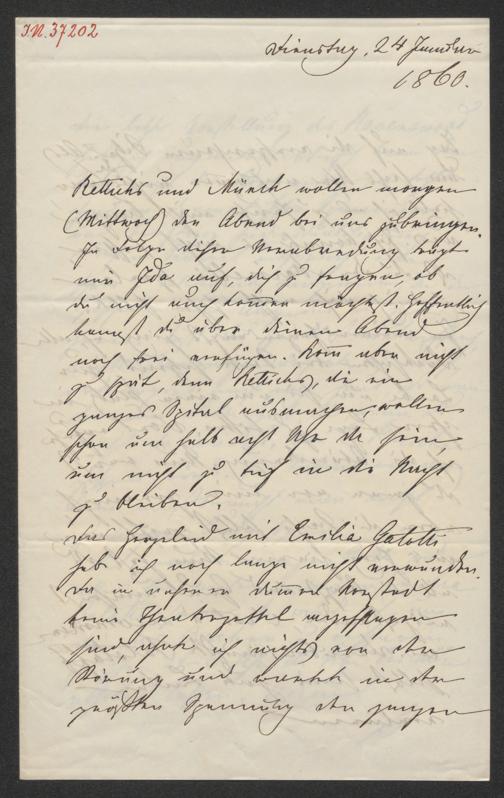 I.N. 37202
Dienstag, 24 Jänner
1860.
Rettichs und Münch wollen morgen
(Mittwoch) den Abend bei uns zubringen.
In Folge dieser Verabredung trägt
mir Ida auf, dich zu fragen, ob
du nicht auch kommen möchtest. Hoffentlich
kannst du über deinen Abend
noch frei verfügen. Komm aber nicht
zu spät, denn Rettichs, die ein
ganzes Spital ausmachen, wollen
schon um halb acht Uhr da sein,
um nicht zu tief in die Nacht
zu bleiben.
Das Herzeleid mit Emilia Galotti
hab ich noch lange nicht verwunden.
Da in unserer dummen Vorstadt
keine Theaterzettel angeschlagen
sind, ahnte ich nichts von der
Störung und wartete in der
größten Spannung den ganzen